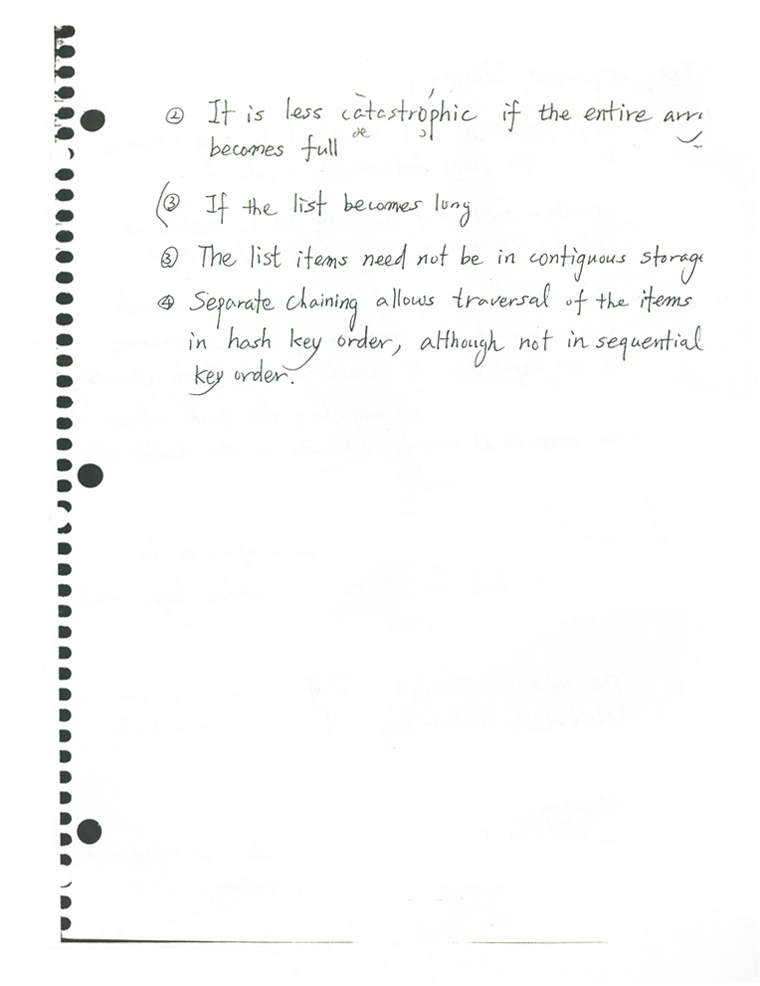 ② It is less catastrophic if the entire
becomes full
(③ If the list becomes long
③ The list items need not be in contiguous storage
④ Separate chaining allows traversal of the items
in hash key order, although not in sequential
key order.